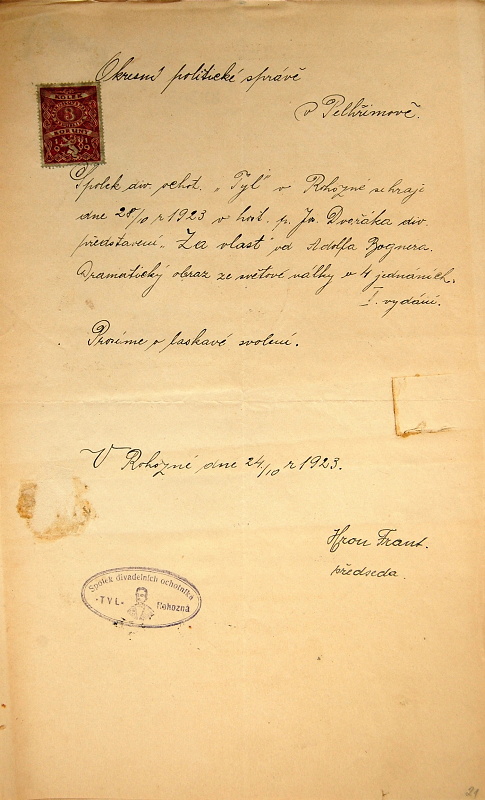 Okresní politické správě
v Pelhřimově.
KOLEK
3
KORUNY
1919
Spolek div. ochot. „Tyl" v Rohozné sehraje
dne 28/10 r 1923 v host. p. Jos. Dvořáka div.
představení „Za vlast" od Adolfa Bognera.
Dramatický obraz ze světové války o 4 jednáních.
I. vydání.
Prosíme o laskavé svolení.
V Rohozné dne 24/10 r 1923.
Hron Frant.
předseda.
Spolek divadelních ochotníků
-TYL- Rohozná
21